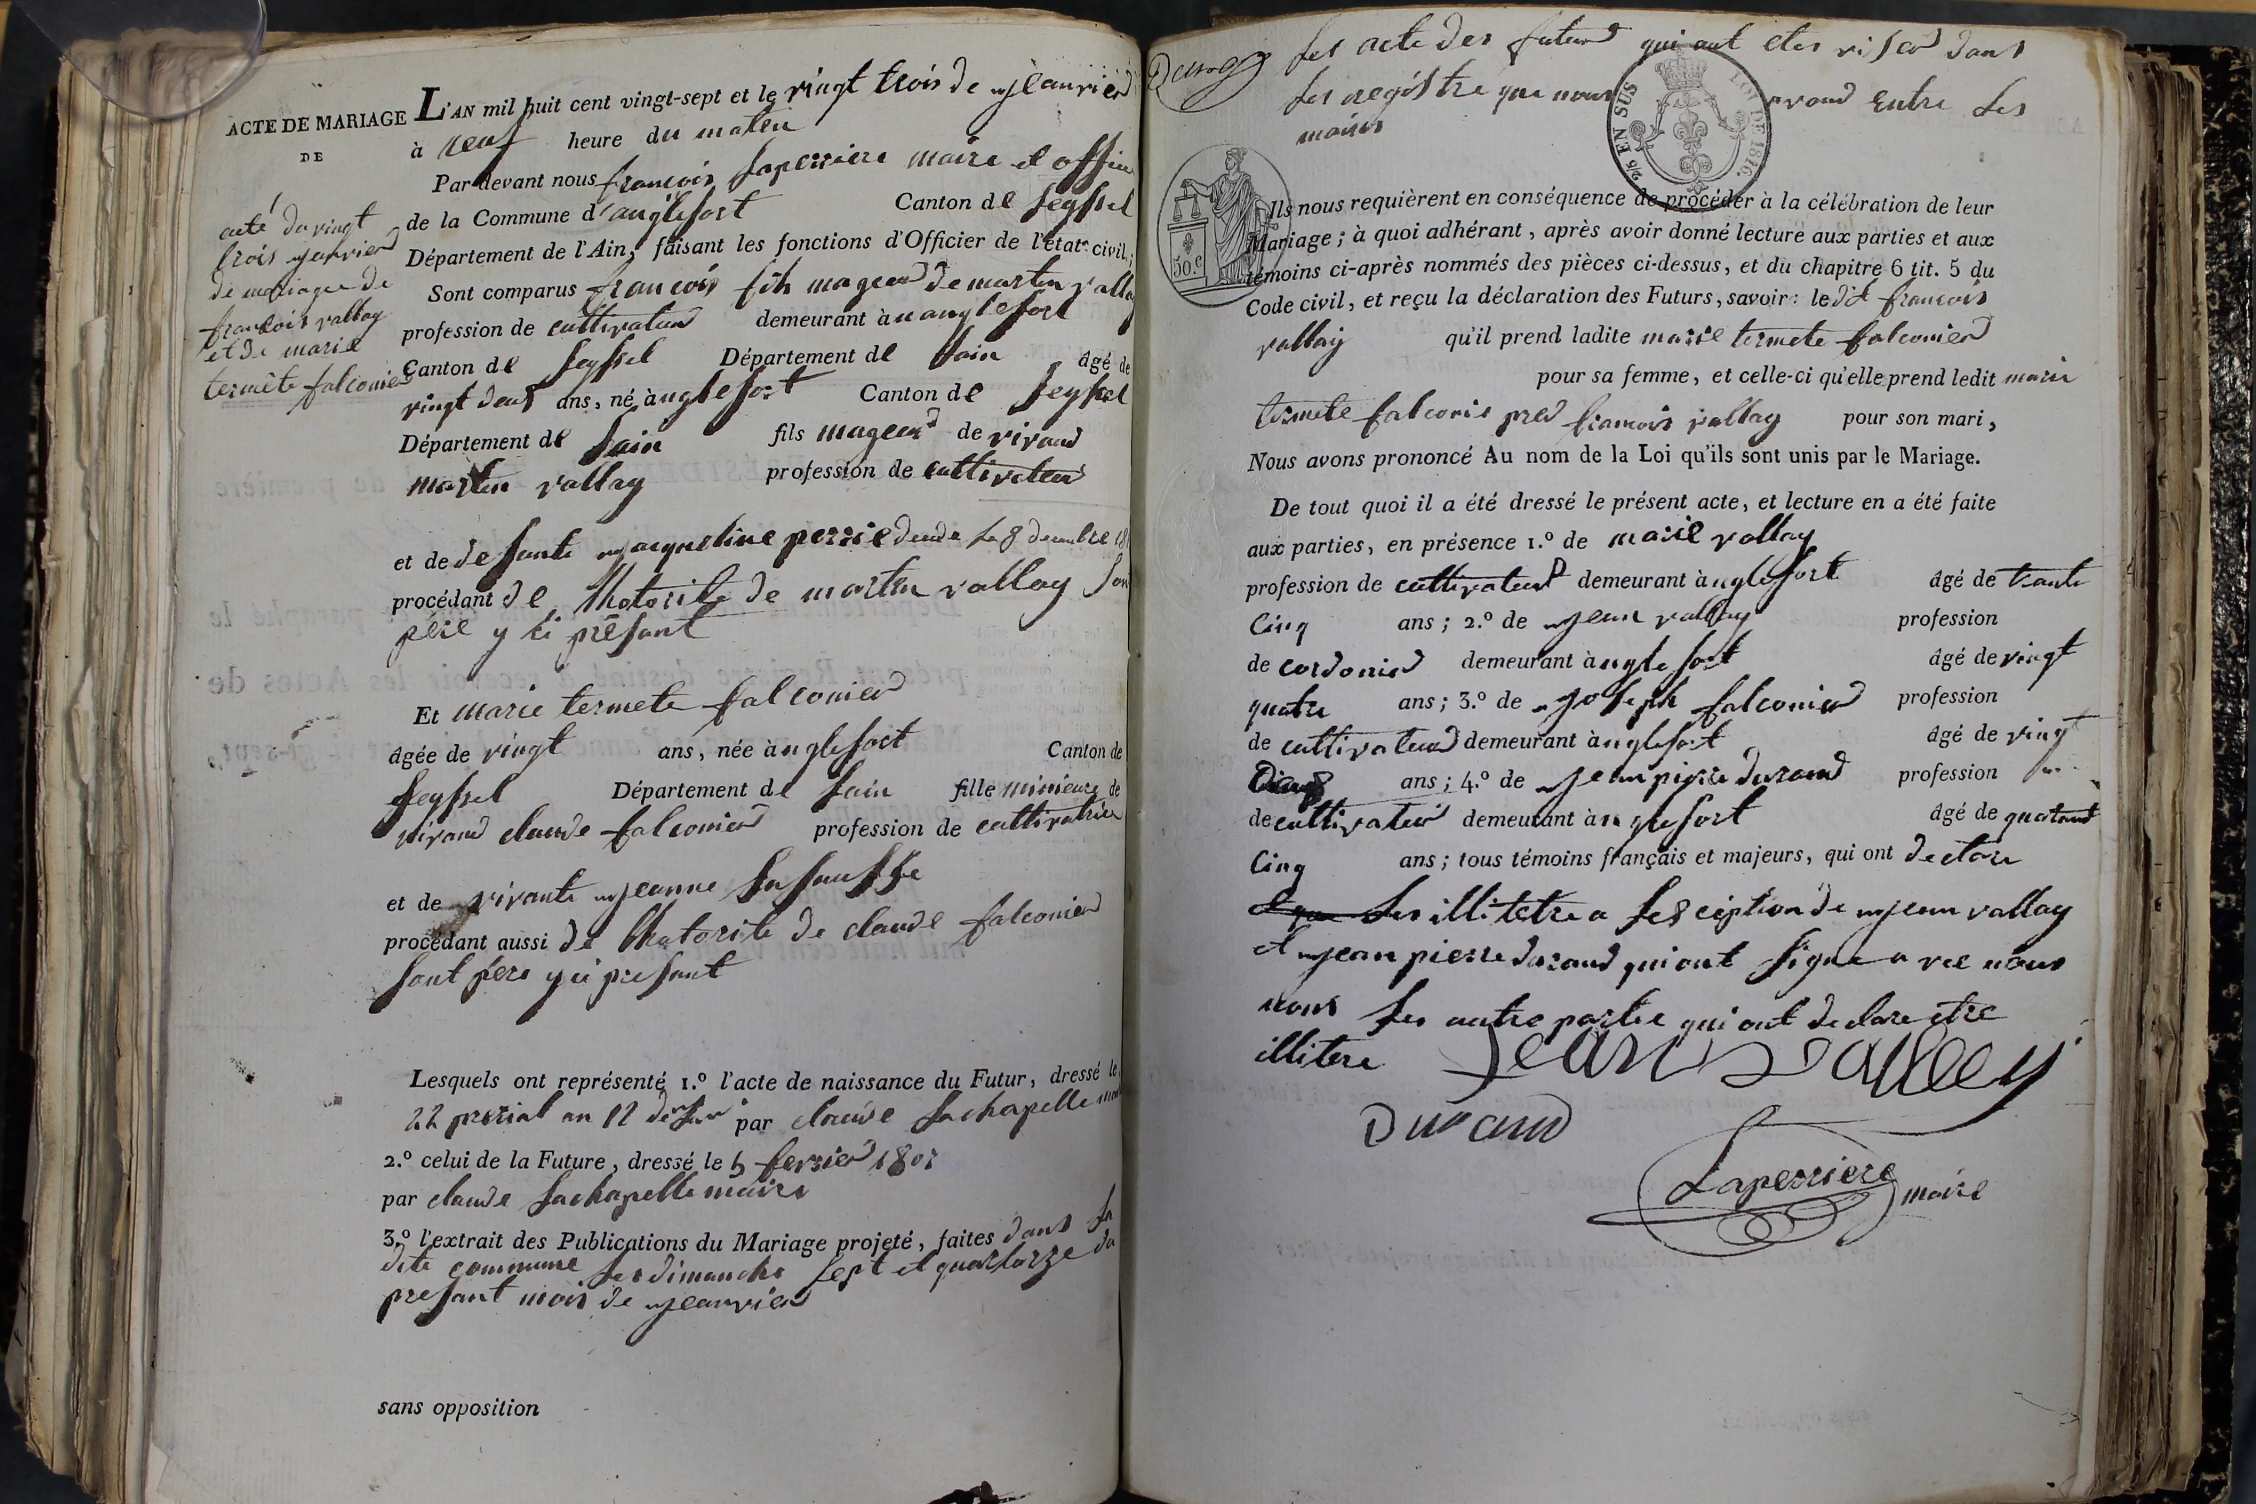 ACTE DE MARIAGE
DE
acte du vingt
trois janvier
de mariage de
francois vallay
et de marie
termete falconier
L'AN mil huit cent vingt-sept et le vingt trois de jeanvier
à neuf heure du maten
Par devant nous francois Laperriere maire et officier
de la Commune d'anglefort Canton de Seyssel
Département de l'Ain, faisant les fonctions d'Officier de l'état civil;
Sont comparus francois fils mageur de marten vallay
profession de cultivateur demeurant à anglefort
Canton de Seyssel Département de Lain âgé de
vingt deux ans, né à nglefort Canton de Seyssel
Département de Lain fils mageur de vivand
marten vallay profession de cultivateur
et de defunte jacqueline perrie le 8 decembre
procédant de Lhotorite de marten vallay son
père y ci présant
Et marie termete falconier
âgée de vingt ans, née à nglefort Canton de
Seyssel Département de Lain fille minieure de
vivand claude falconier profession de
et de vivante jeanne
procédant aussi de Lhotorite de claude falconier
sont père y ci presant
Lesquels ont représenté 1.º l'acte de naissance du Futur, dressé le
22 prerial an 12 par claude Lachapelle
2.º celui de la Future, dressé le 5 fevrier 1807
par claude Lachapelle maire
3.º l'extrait des Publications du Mariage projeté, faites dans la
dite commune les dimanche sept et quartorze du
presant mois de jeanvier
sans opposition
Les acte des futeur qui ont etes viser dans
Les registre que nous avond entre Les
mains
2/5 EN SUS
LOI DE 1816.
50.c
Ils nous requièrent en conséquence de procéder à la célébration de leur
Mariage; à quoi adhérant, après avoir donné lecture aux parties et aux
témoins ci-après nommés des pièces ci-dessus, et du chapitre 6 tit. 5 du
Code civil, et reçu la déclaration des Futurs, savoir: le dit francois
vallay qu'il prend ladite marie termete falconier
pour sa femme, et celle-ci qu'elle prend ledit marie
termete falconie francois vallay pour son mari,
Nous avons prononcé Au nom de la Loi qu'ils sont unis par le Mariage.
De tout quoi il a été dressé le présent acte, et lecture en a été faite
aux parties, en présence 1.º de marie vallay
profession de cultivateur demeurant à nglefort âgé de trante
Cinq ans; 2.º de jean vallay profession
de cordonier demeurant à nglefort âgé de vingt
quatre ans; 3.º de joseph falconier profession
de cultivateur demeurant à nglefort âgé de vingt
ans; 4.º de jean pierre durand profession
de cultivateur demeurant à nglefort âgé de
Cinq ans; tous témoins français et majeurs, qui ont declare
illitetre a Lesception de jean vallay
et jean pierre durand qui ont signe avec nous
nons Les autre partie qui ont declare etre
illitere
Jean Vallley
Durand
Laperriere maire